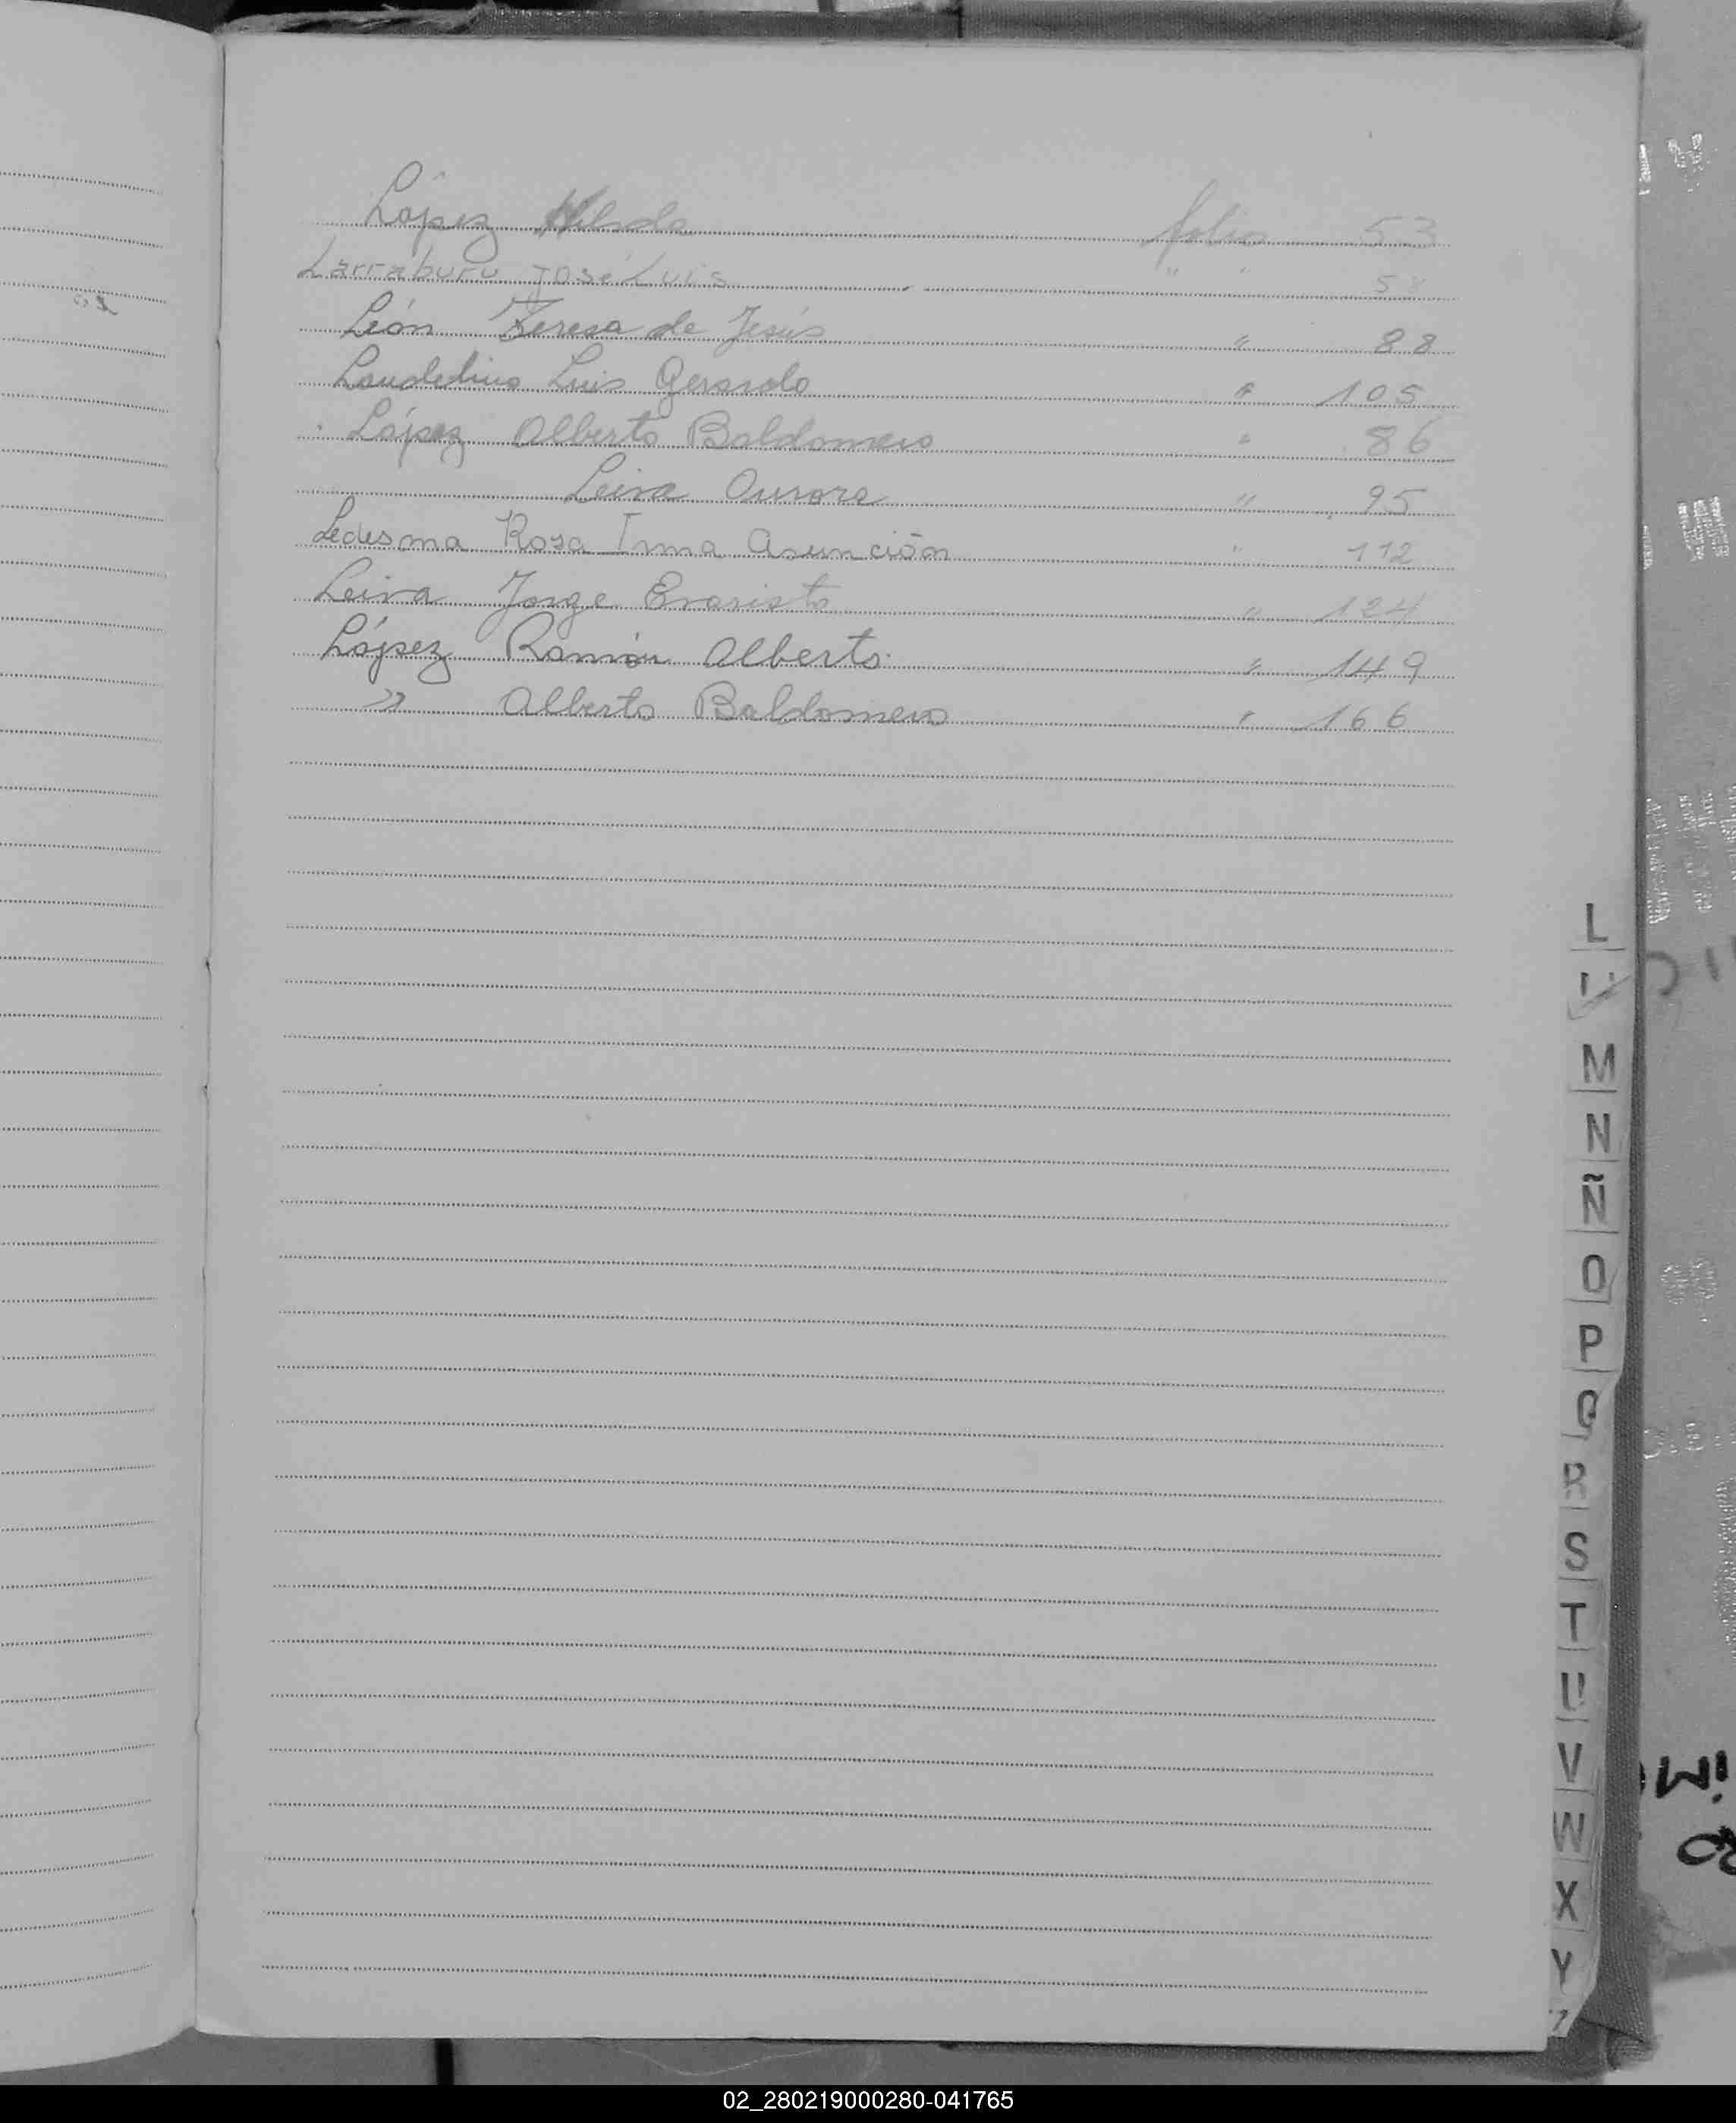 López Hilda folio 53
Larraburu José Luis " " 58
León Teresa de Jesús " 88
Laudelino Luis Gerardo " 105
López Alberto Baldomero " 86
Leiva Aurora " 95
Ledesma Rosa Irma Asunción " 112
Leiva Jorge Evaristo " 124
López Ramón Alberto " 149
" Alberto Baldomero " 166
L
M
N
Ñ
O
P
Q
R
S
T
U
V
W
X
Y
02_280219000280-041765